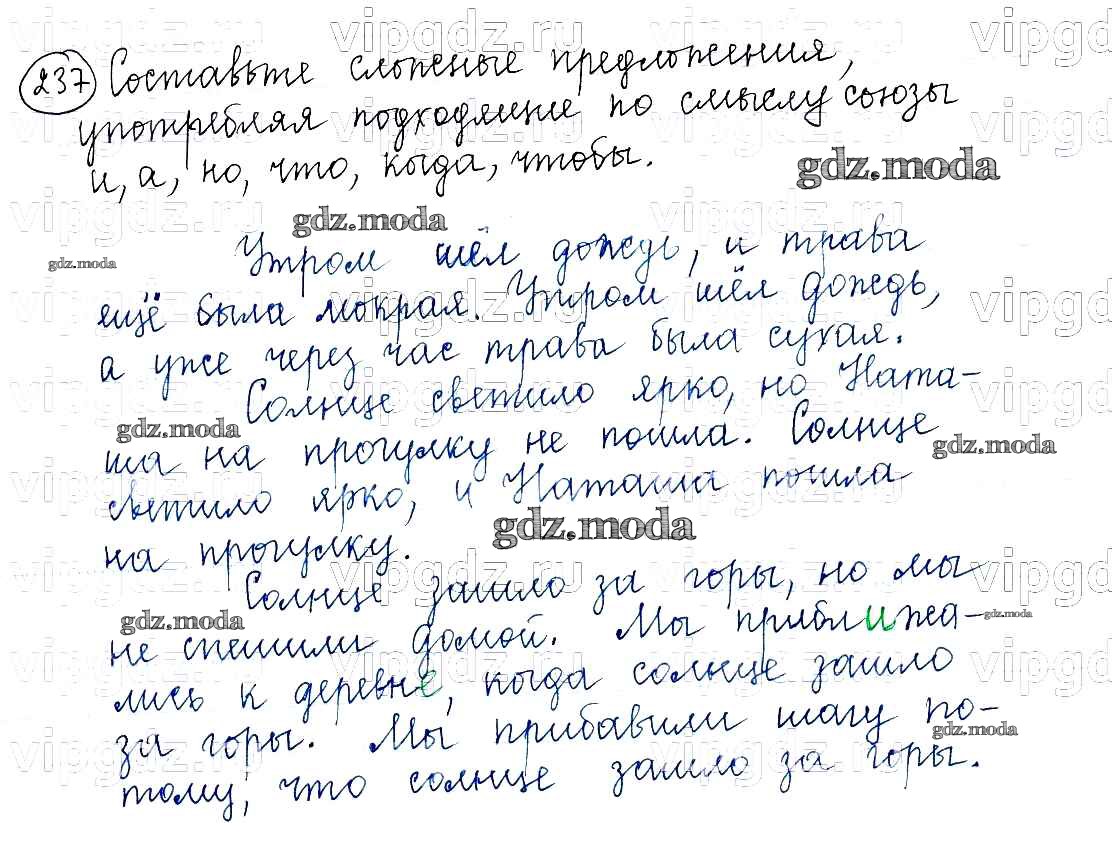 237 Составьте сложные предложения,
употребляя подходящие по смыслу союзы
и, а, но, что, когда, чтобы.
gdz.moda
gdz.moda
gdz.moda
Утром шёл дождь, и трава
ещё была мокрая. Утром шёл дождь,
а уже через час трава была сухая.
Солнце светило ярко, но Ната-
gdz.moda
ша на прогулку не пошла. Солнце
gdz.moda
светило ярко, и Наташа пошла
gdz.moda
на прогулку.
Солнце зашло за горы, но мы
gdz.moda
не спешили домой. Мы приближа-
gdz.moda
лись к деревне, когда солнце зашло
за горы. Мы прибавили шагу по-
gdz.moda
тому, что солнце зашло за горы.
vipgdz.ru